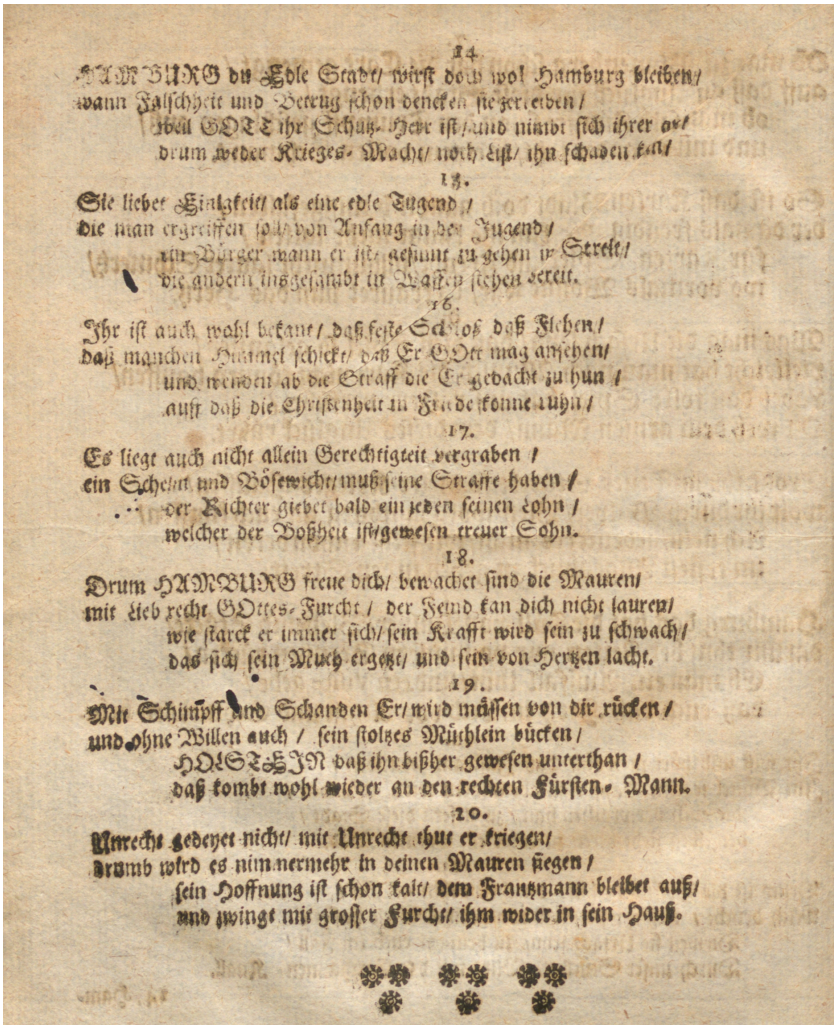 14.
HAMBURG du Edle Stadt/ wirst doch wol Hamburg bleiben/
wann Falschheit und Betrug schon dencken sie zerreiben/
weil GOTT ihr Schutz-Herr ist/ und nimbt sich ihrer an/
drum weder Krieges-Macht/ noch List/ ihn schaden kan/
15.
Sie liebet Einigkeit/ als eine edle Tugend/
die man ergreiffen soll/ von Anfang in der Jugend/
ein Bürger wann er ist/ gesinnt zu gehen in Streit/
die andern insgesambt in Waffen stehen bereit.
16.
Ihr ist auch wohl bekant/ daß feste Schloß daß Flehen/
daß manchen Himmel schickt/ daß Er GOtt mag ansehen/
und wenden ab die Straff die Er gedacht zu thun/
auff daß die Christenheit in Friede konne ruhn/
17.
Es liegt auch nicht allein Gerechtigkeit vergraben/
ein Schelm und Bösewicht/ muß seine Straffe haben/
der Richter giebet bald ein jeden seinen Lohn/
welcher der Boßheit ist/ gewesen treuer Sohn.
18.
Drum HAMBURG freue dich/ bewachet sind die Mauren/
mit Lieb recht GOttes-Furcht/ der Feind kan dich nicht lauren/
wie starck er immer sich/ sein Krafft wird sein zu schwach/
das sich sein Muth ergetzt/ und sein von Hertzen lacht.
19.
Mit Schimpff und Schanden Er/ wird müssen von dir rücken/
und ohne Willen auch/ sein stoltzes Müthlein bücken/
HOLSTEIN daß ihn bißher gewesen unterthan/
daß kombt wohl wieder an den rechten Fürsten-Mann.
20.
Unrecht gedeyet nicht/ mit Unrecht thut er kriegen/
drumb wird es nimmermehr in deinen Mauren siegen/
sein Hoffnung ist schon kalt/ dem Frantzmann bleibet auß/
und zwingt mit grosser Furcht/ ihm wider in sein Hauß.